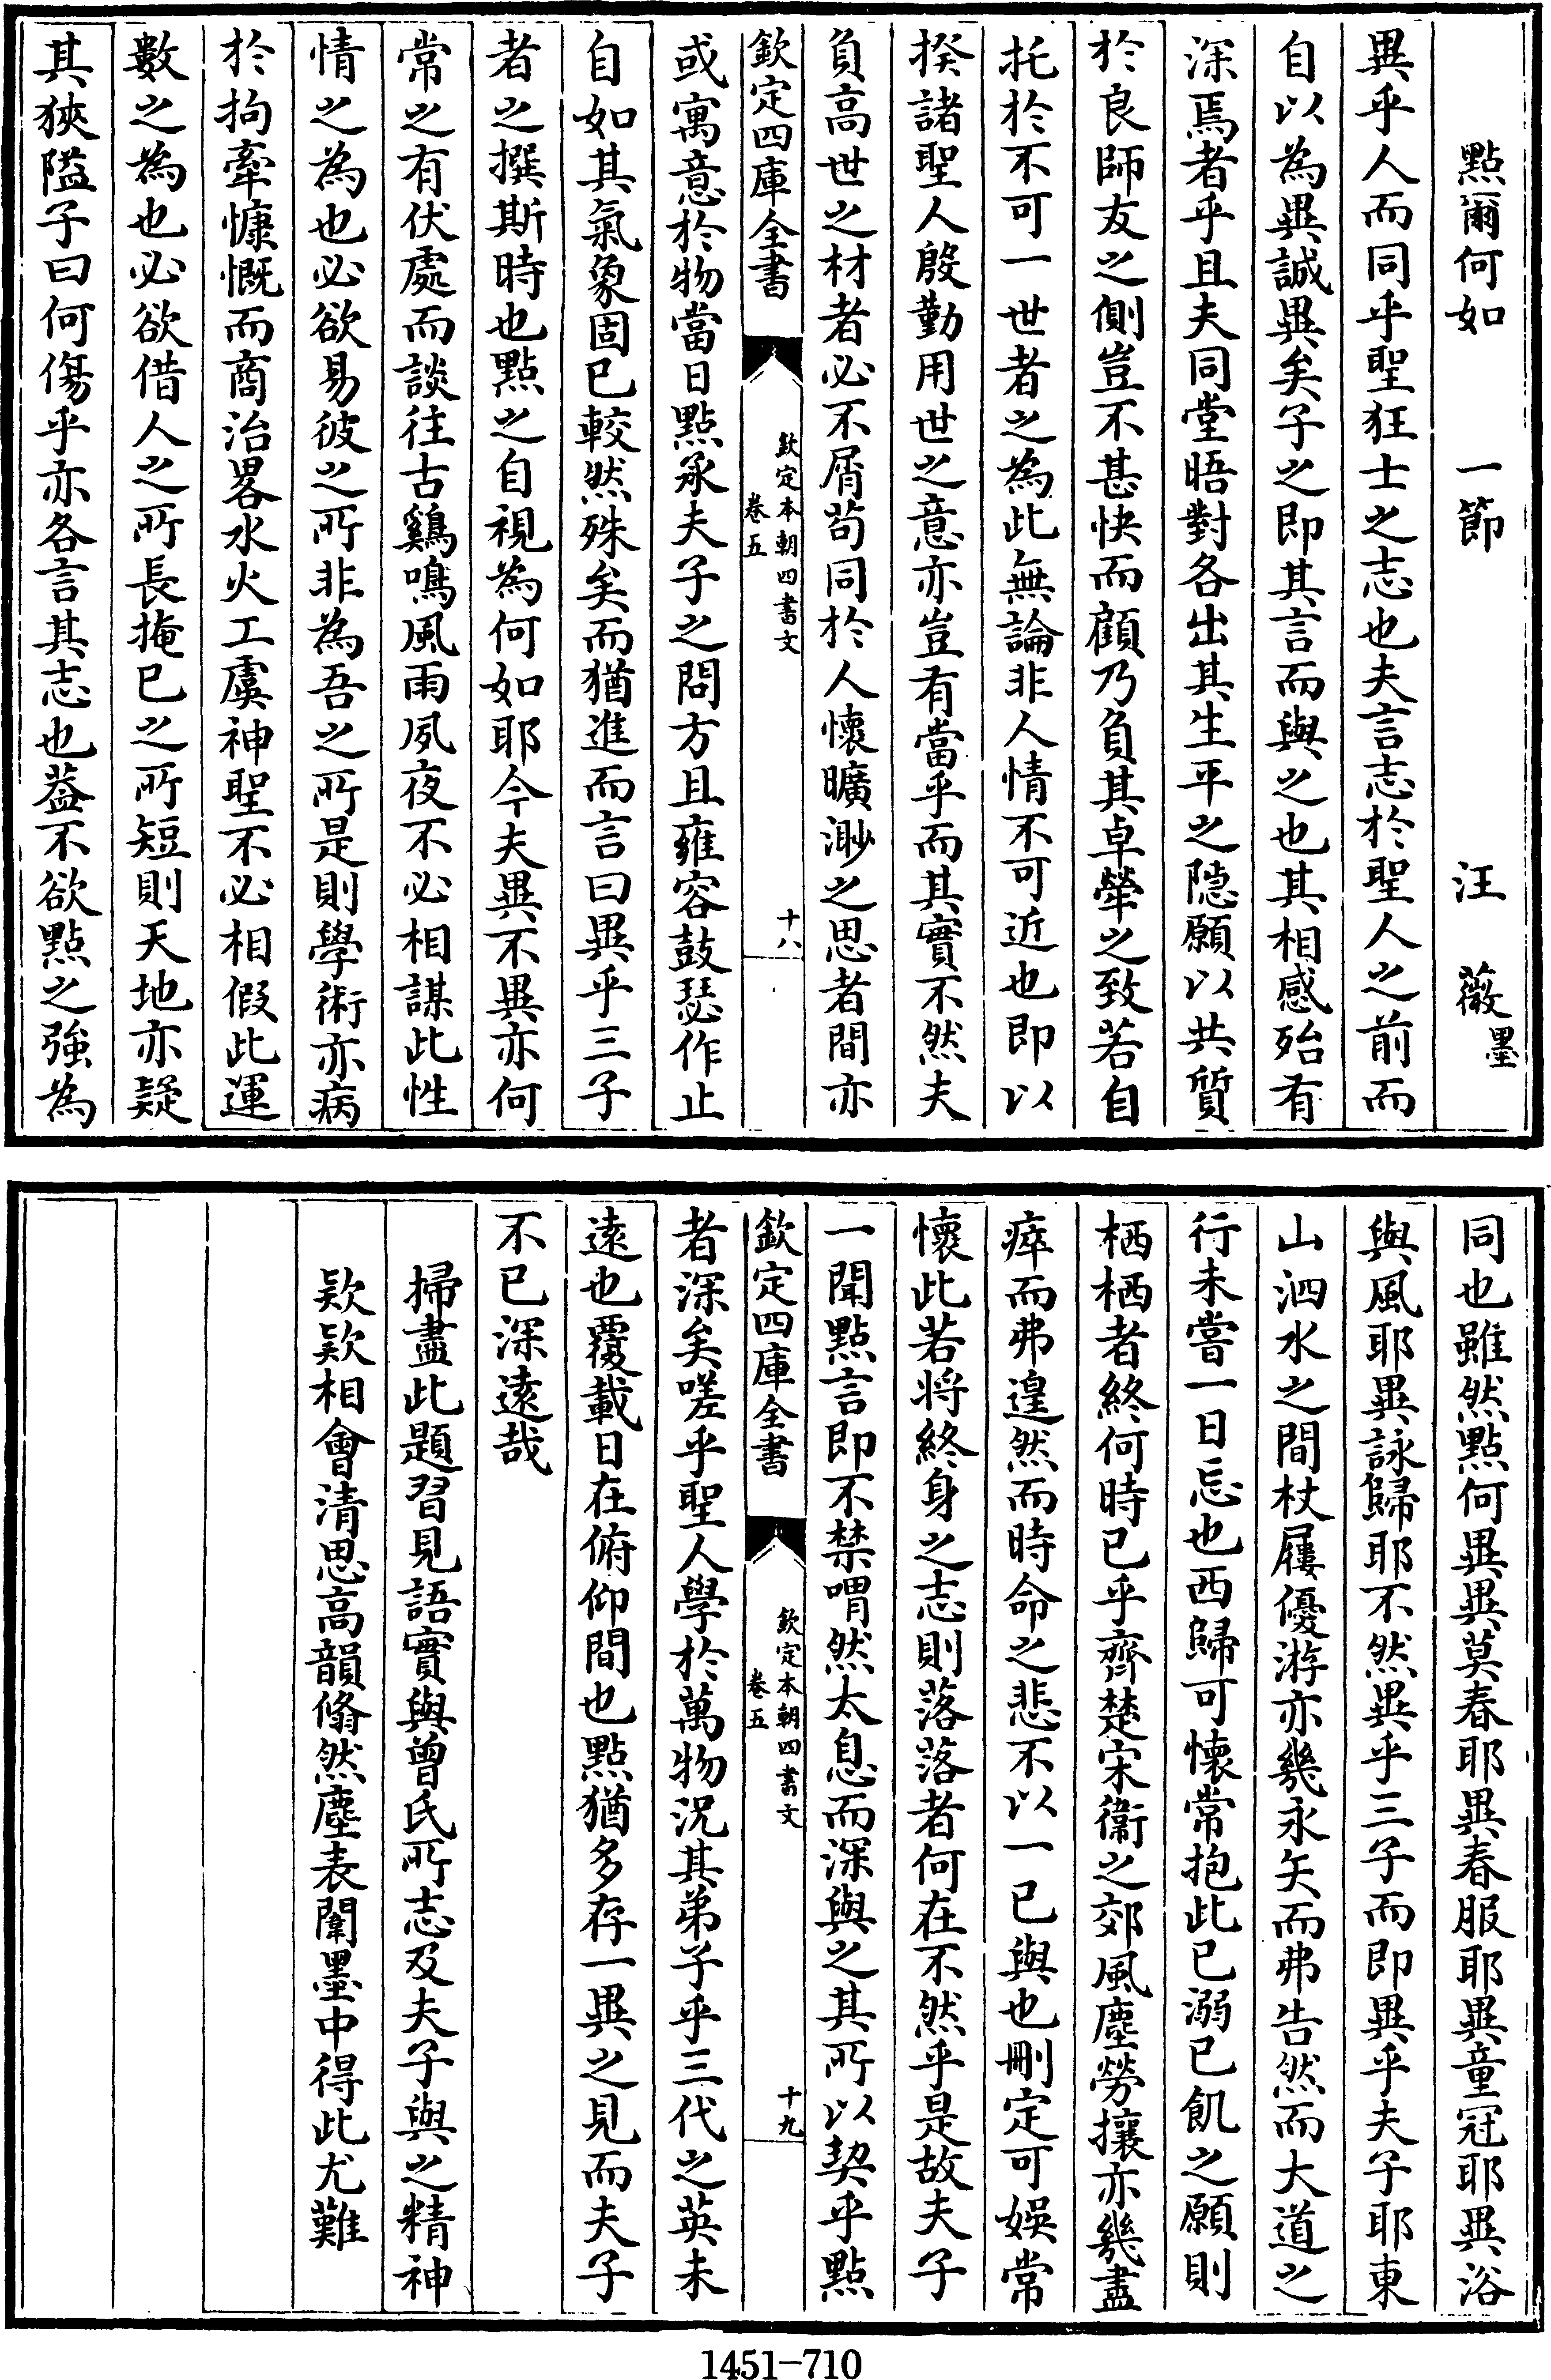 點爾何如　一節　汪　薇墨
異乎人而同乎聖狂士之志也夫言志於聖人之前而
自以為異誠異矣子之即其言而與之也其相感殆有
深焉者乎且夫同堂晤對各出其生平之隠願以共質
於良師友之側豈不甚快而顧乃負其卓犖之致若自
托於不可一世者之為此無論非人情不可近也即以
揆諸聖人殷勤用世之意亦豈有當乎而其實不然夫
負高世之材者必不屑苟同於人懷曠渺之思者間亦
欽定四庫全書
欽定本朝四書文
卷五
十八
或寓意於物當日點承夫子之問方且雍容鼓瑟作止
自如其氣象固已較然殊矣而猶進而言曰異乎三子
者之撰斯時也點之自視為何如耶今夫異不異亦何
常之有伏處而談往古鷄鳴風雨夙夜不必相謀此性
情之為也必欲易彼之所非為吾之所是則學術亦病
於拘牽慷慨而商治畧水火工虞神聖不必相假此運
數之為也必欲借人之所長掩已之所短則天地亦疑
其狹隘子曰何傷乎亦各言其志也葢不欲點之強為
同也雖然點何異異莫春耶異春服耶異童冠耶異浴
與風耶異詠歸耶不然異乎三子而即異乎夫子耶東
山泗水之間杖屨優游亦幾永矢而弗告然而大道之
行未嘗一日忘也西歸可懷常抱此已溺已飢之願則
栖栖者終何時已乎齊楚宋衞之郊風塵勞攘亦幾盡
瘁而弗遑然而時命之悲不以一已與也刪定可娛常
懷此若将終身之志則落落者何在不然乎是故夫子
一聞點言即不禁喟然太息而深與之其所以契乎點
欽定四庫全書
欽定本朝四書文
卷五
十九
者深矣嗟乎聖人學於萬物况其弟子乎三代之英未
逺也覆載日在俯仰間也點猶多存一異之見而夫子
不已深逺哉
掃盡此題習見語實與曾氏所志及夫子與之精神
欵欵相會清思高韻翛然塵表闈墨中得此尤難
1451-710